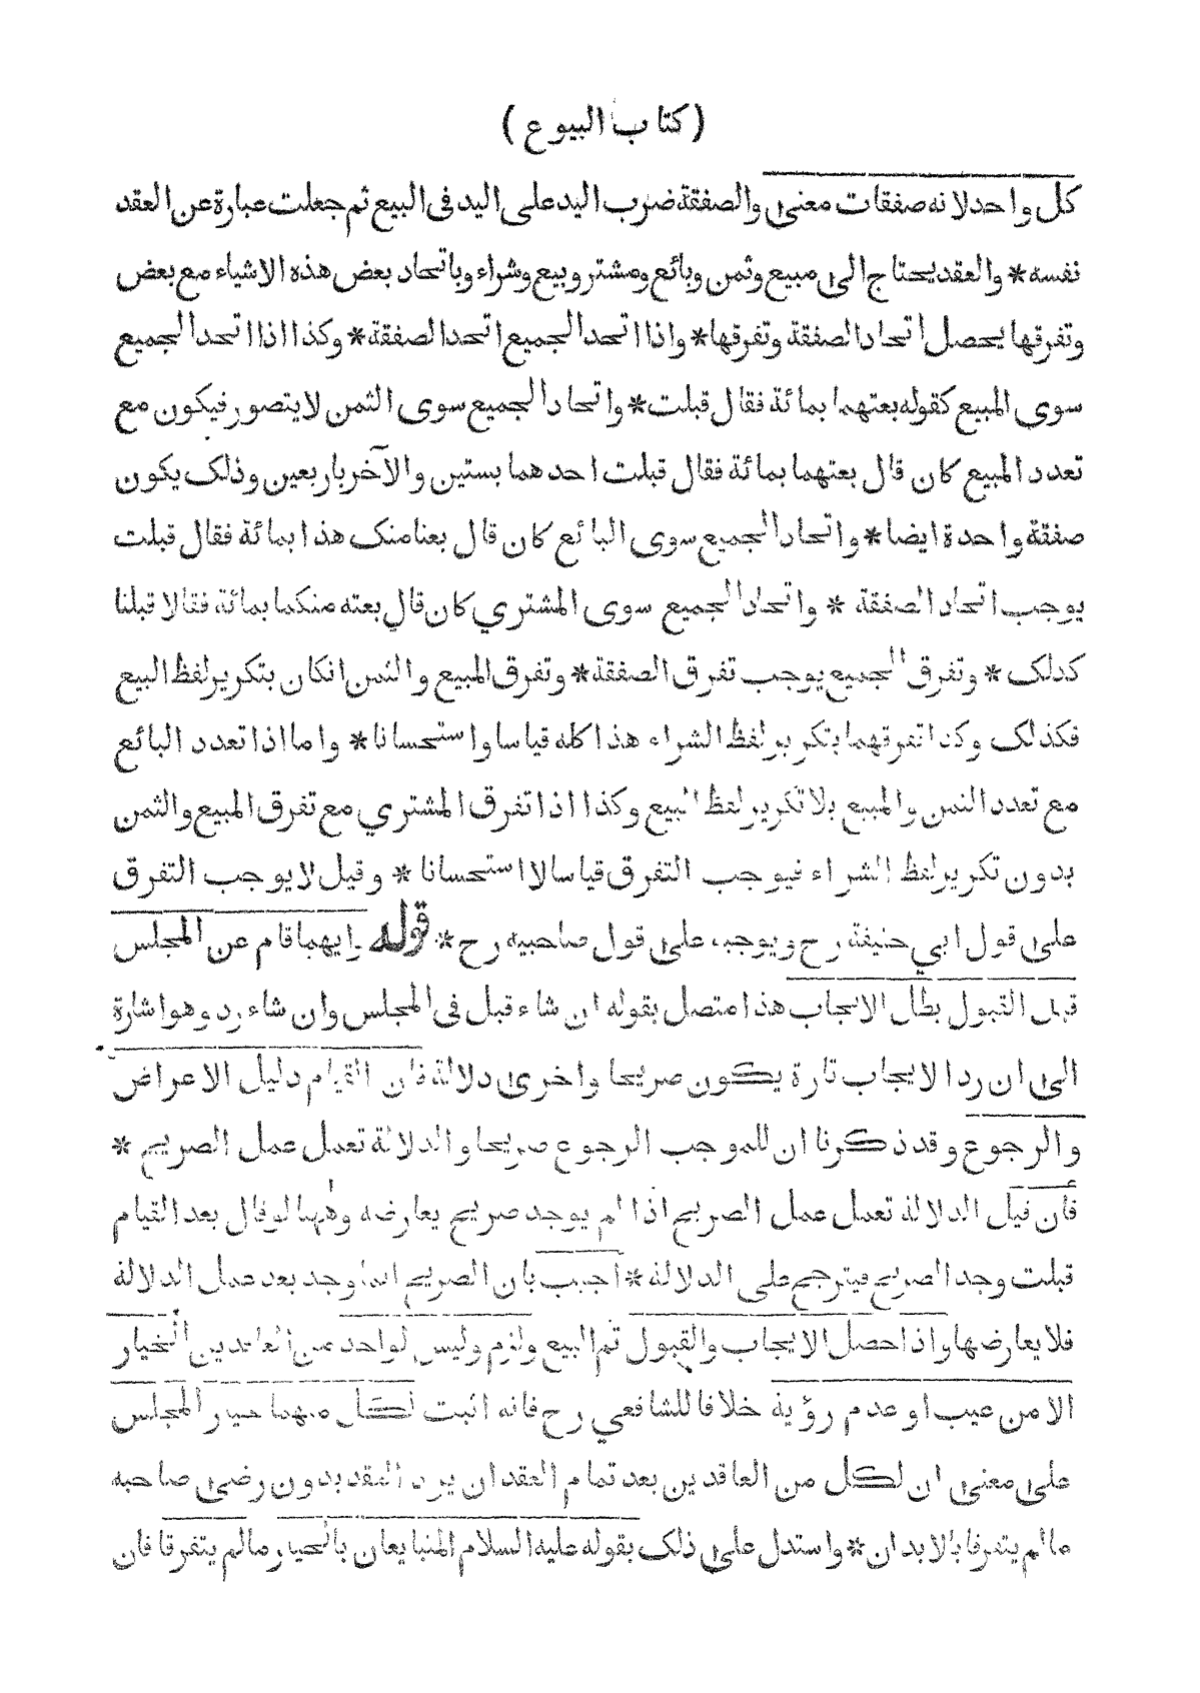 (كتاب البيوع)
كل واحد لانه صفقات معنى والصفقة ضرب اليد على اليد فى البيع ثم جعلت عبارة عن العقد
نفسه * والعقد يحتاج الى مبيع وثمن وبائع ومشتر وبيع وشراء وباتحاد بعض هذه الاشياء مع بعض
وتفرقها يحصل اتحاد الصفقة وتفرقها * واذا اتحد الجميع اتحد الصفقة * وكذا اذا اتحد الجميع
سوى المبيع كقوله بعتهما بمائة فقال قبلت * واتحاد الجميع سوى الثمن لا يتصور فيكون مع
تعدد المبيع كان قال بعتهما بمائة فقال قبلت احدهما بستين والآخر باربعين وذلك يكون
صفقة واحدة ايضا * واتحاد الجميع سوى البائع كان قال بعنا منك هذا بمائة فقال قبلت
يوجب اتحاد الصفقة * واتحاد الجميع سوى المشتري كان قال بعته منكما بمائة فقالا قبلنا
كذلك * وتفرق الجميع يوجب تفرق الصفقة * وتفرق المبيع والثمن انكان بتكرير لفظ البيع
فكذلك وكذا تفرقهما بتكرير لفظ الشراء هذا كله قياسا واستحسانا * واما اذا تعدد البائع
مع تعدد الثمن والمبيع بلا تكرير لفظ البيع وكذا اذا تفرق المشتري مع تفرق المبيع والثمن
بدون تكرير لفظ الشراء فيوجب التفرق قياسا لا استحسانا * وقيل لا يوجب التفرق
على قول ابي حنيفة رح ويوجبه على قول صاحبيه رح * قوله وايهما قام عن المجلس
قبل القبول بطل الايجاب هذا متصل بقوله ان شاء قبل فى المجلس وان شاء رد وهو اشارة
الى ان رد الايجاب تارة يكون صريحا واخرى دلالة فان القيام دليل الاعراض
والرجوع وقد ذكرنا ان للموجب الرجوع صريحا والدلالة تعمل عمل الصريح *
فأن قيل الدلالة تعمل عمل الصريح اذا لم يوجد صريح يعارضه وههنا لوقال بعد القيام
قبلت وجد الصريح فيترجح على الدلالة * اجيب بان الصريح انما وجد بعد عمل الدلالة
فلا يعارضها واذا حصل الايجاب والقبول تم البيع ولزم وليس لواحد من العاقدين الخيار
الا من عيب او عدم رؤية خلافا للشافعي رح فانه اثبت لكل منهما خيار المجلس
على معنى ان لكل من العاقدين بعد تمام العقد ان يرد العقد بدون رضى صاحبه
مالم يتفرقا بالابدان * واستدل على ذلك بقوله عليه السلام المتبايعان بالخيار مالم يتفرقا فان